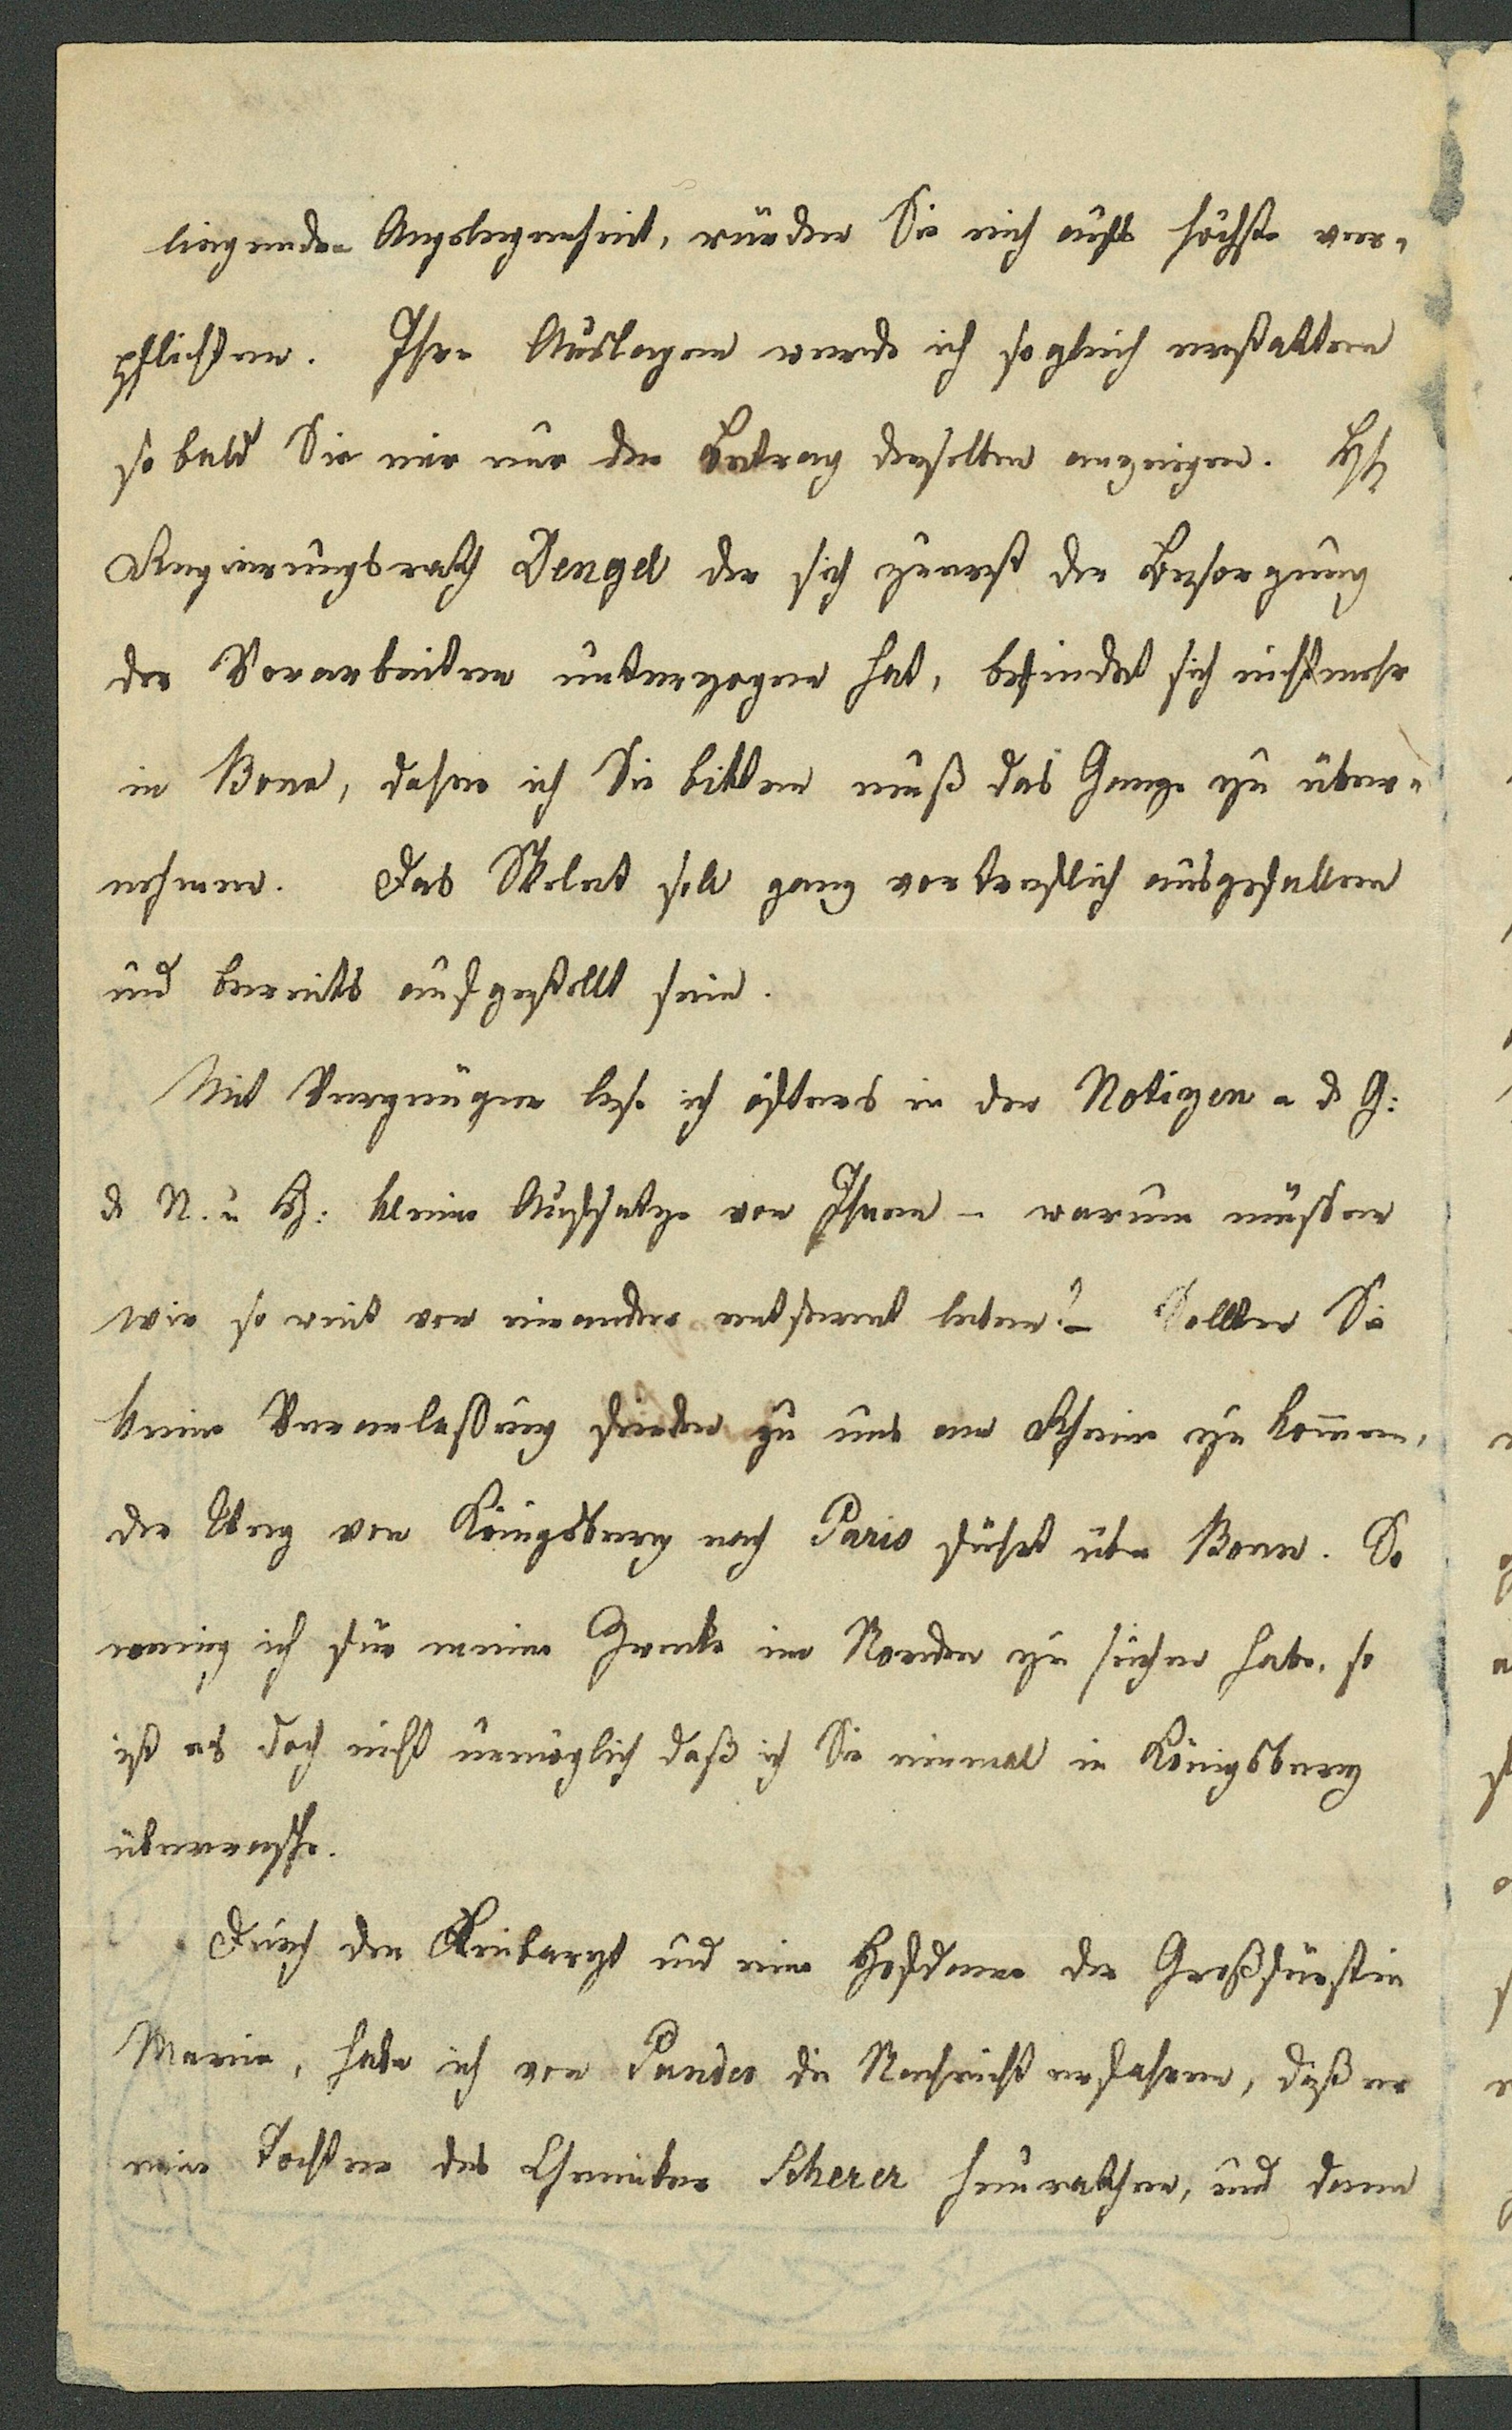 liegenden Angelegenheit, würden Sie mich aufs höchste ver-
pflichten. Ihre Auslagen werde ich sogleich erstatten
so bald Sie mir nur den Betrag derselben anzeigen. H
Regierungsrath Dengel der sich zuerst der Besorgung
der Vorarbeiten unterzogen hat, befindet sich nichtmehr
in Bonn, daher ich Sie bitten muß das Ganze zu über-
nehmen. Das Skelet soll ganz vortrefflich ausgefallen
und bereits aufgestellt sein.
Mit Vergnügen lese ich öfters in den Notizen a d G:
d N. u H: kleine Aufsätze von Ihnen – warum müssen
wir so weit von einander entfernt leben? – Sollten Sie
keine Veranlassung finden zu uns am Rhein zu kommen,
der Weg von Königsberg nach Paris führt über Bonn. So
wenig ich für meine Zwecke im Norden zu suchen habe, so
ist es doch nicht unmöglich daß ich Sie einmal in Königsberg
überrasche.
Durch den Leibarzt und eine Hofdame der Großfürstin
Maria, habe ich von Pander die Nachricht erfahren, daß er
eine Tochter des Chemikers Scherer heurathen, und dann